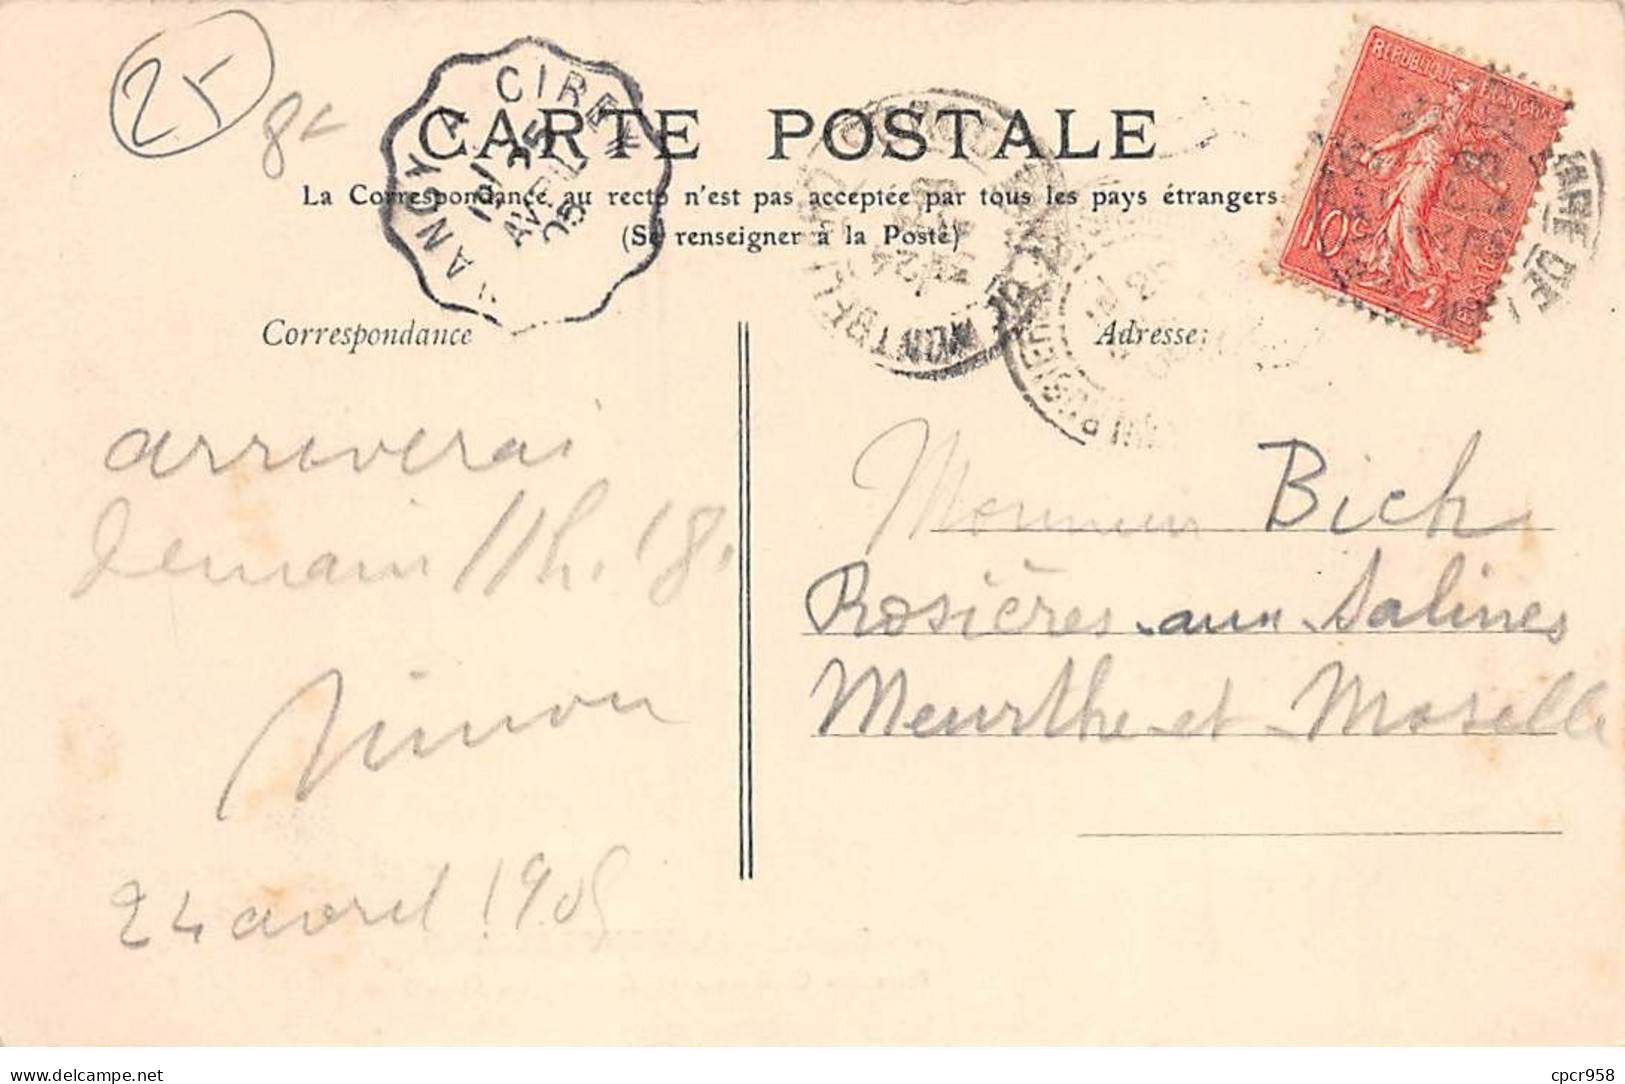 25
8-
NANCY A CIREY
25
AVRIL
05
CARTE POSTALE
La Correspondance au recto n'est pas acceptée par tous les pays étrangers
(Se renseigner à la Poste)
REPUBLIQUE FRANÇAISE
10c
Correspondance
Adresse:
arriverai
demain 11h. 18.
Simon
24 avril 1905
Monsieur Bich
Rosières aux Salines
Meurthe et Moselle
delcampe.net
cpcr958